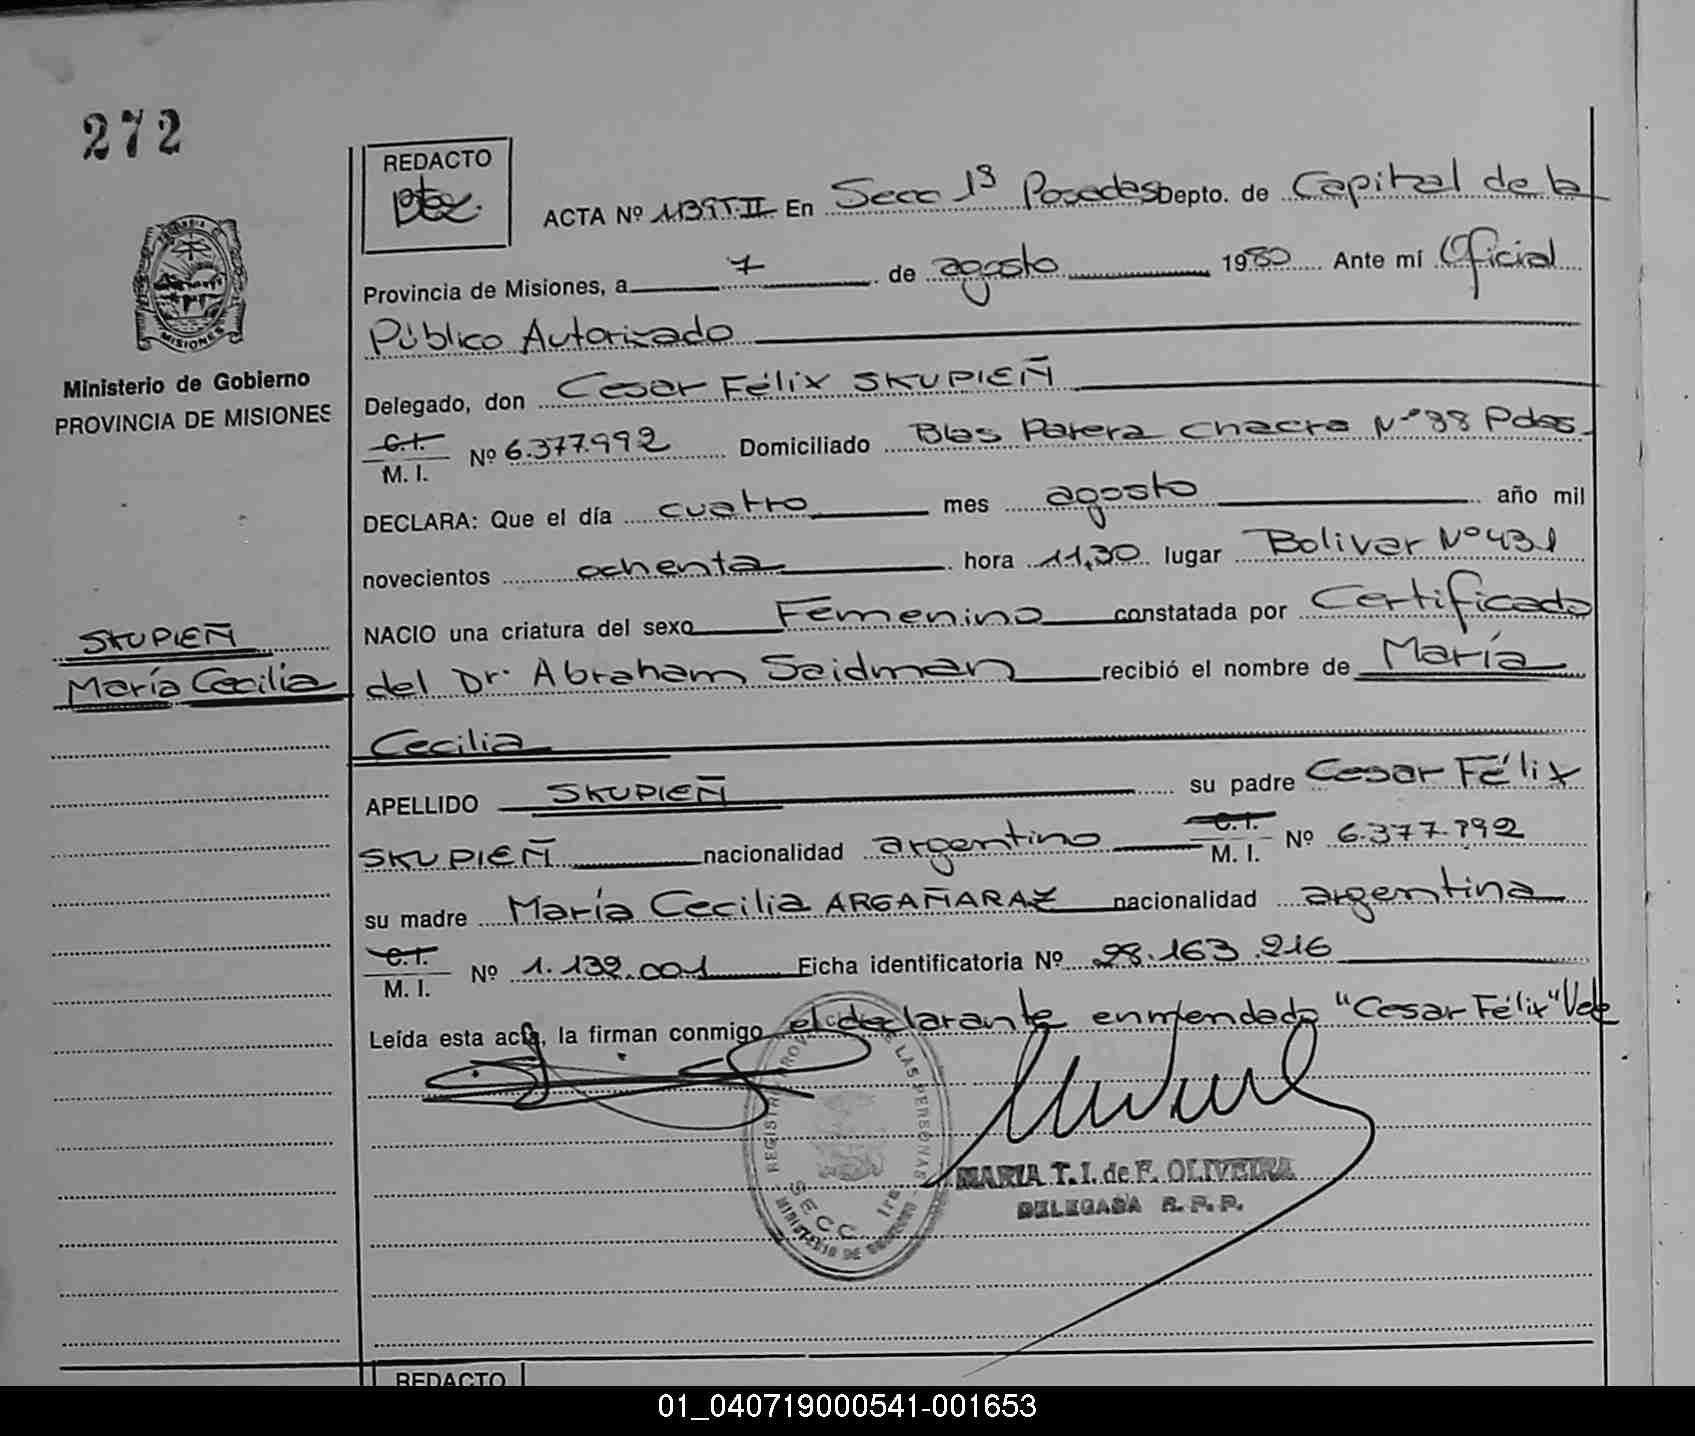 272
REDACTO
ACTA Nº 1139T.II En Secc 1ª Posadas Depto. de Capital de la
Provincia de Misiones, a 7 de agosto 1980 Ante mí Oficial
Público Autorizado
MISIONES
Ministerio de Gobierno
PROVINCIA DE MISIONES
Delegado, don Cesar Félix SKUPIEÑ
C.I. M. I. Nº 6.377.992 Domiciliado Blas Parera Chacra Nº 38 Pdas.
DECLARA: Que el día cuatro mes agosto año mil
novecientos ochenta hora 11,30 lugar Bolivar Nº 431
NACIO una criatura del sexo Femenino constatada por Certificado
SKUPIEÑ
María Cecilia
del Dr. Abraham Seidman recibió el nombre de María
Cecilia
APELLIDO SKUPIEÑ su padre Cesar Félix
SKUPIEÑ nacionalidad argentino C.I. M. I. Nº 6.377.992
su madre María Cecilia ARGAÑARAZ nacionalidad argentina
C.I. M. I. Nº 1.132.001 Ficha identificatoria Nº 28.163.216
Leída esta acta, la firman conmigo el declarante enmendado "Cesar Félix" Vale
MARIA T. I. de F. OLIVEIRA
DELEGADA R. P. P.
LAS PERSONAS
SECC 1ra
MINISTERIO DE GOBIERNO
REDACTO
01_040719000541-001653